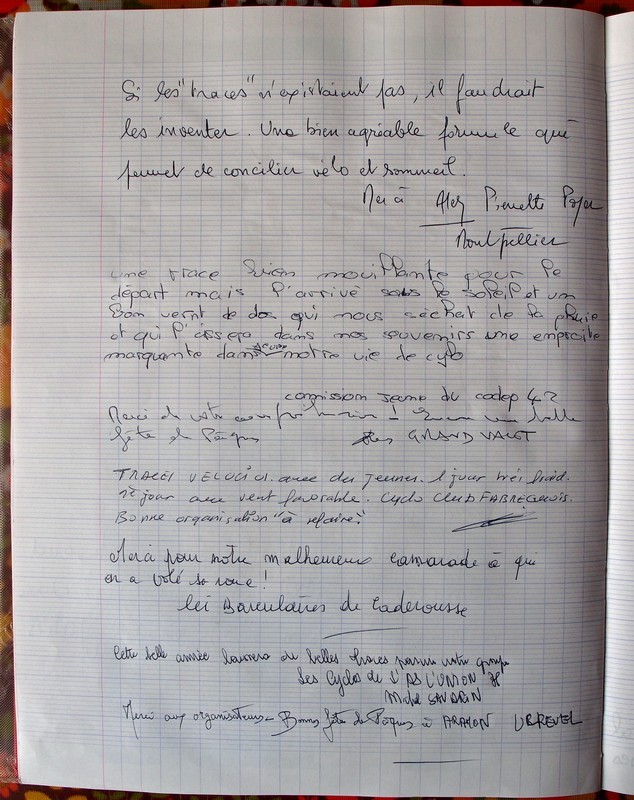 Si les "traces" n'existaient pas, il faudrait
les inventer. Une bien agréable formule qui
permet de concilier vélo et sommeil.
Merci à Alex Pierrette
Montpellier
une trace bien mouillante pour le
départ mais l'arrivé sous le soleil et un
bon vent de dos qui nous séchat de la pluie
et qui l'issera dans nos souvenirs une emprcite
marquante dans notre vie de cyclo
commission jeune du codep 42
Merci de votre ! une belle
fête de Pâques GRAND VALET
TRACES VELOCIO. avec des jeunes. 1 jour très froid.
2è jour avec vent favorable. Cyclo Club FABREGUOIS.
Bonne organisation "à refaire"
Merci pour notre malheureux camarade à qui
on a volé sa roue!
lei Barculaires de Caderousse
Cette belle année laissera de belles traces parmi notre groupe
Les Cyclos de L'AS L'UNION
Michel
Merci aux organisateurs - Bonnes fêtes de Pâques à ARAMON